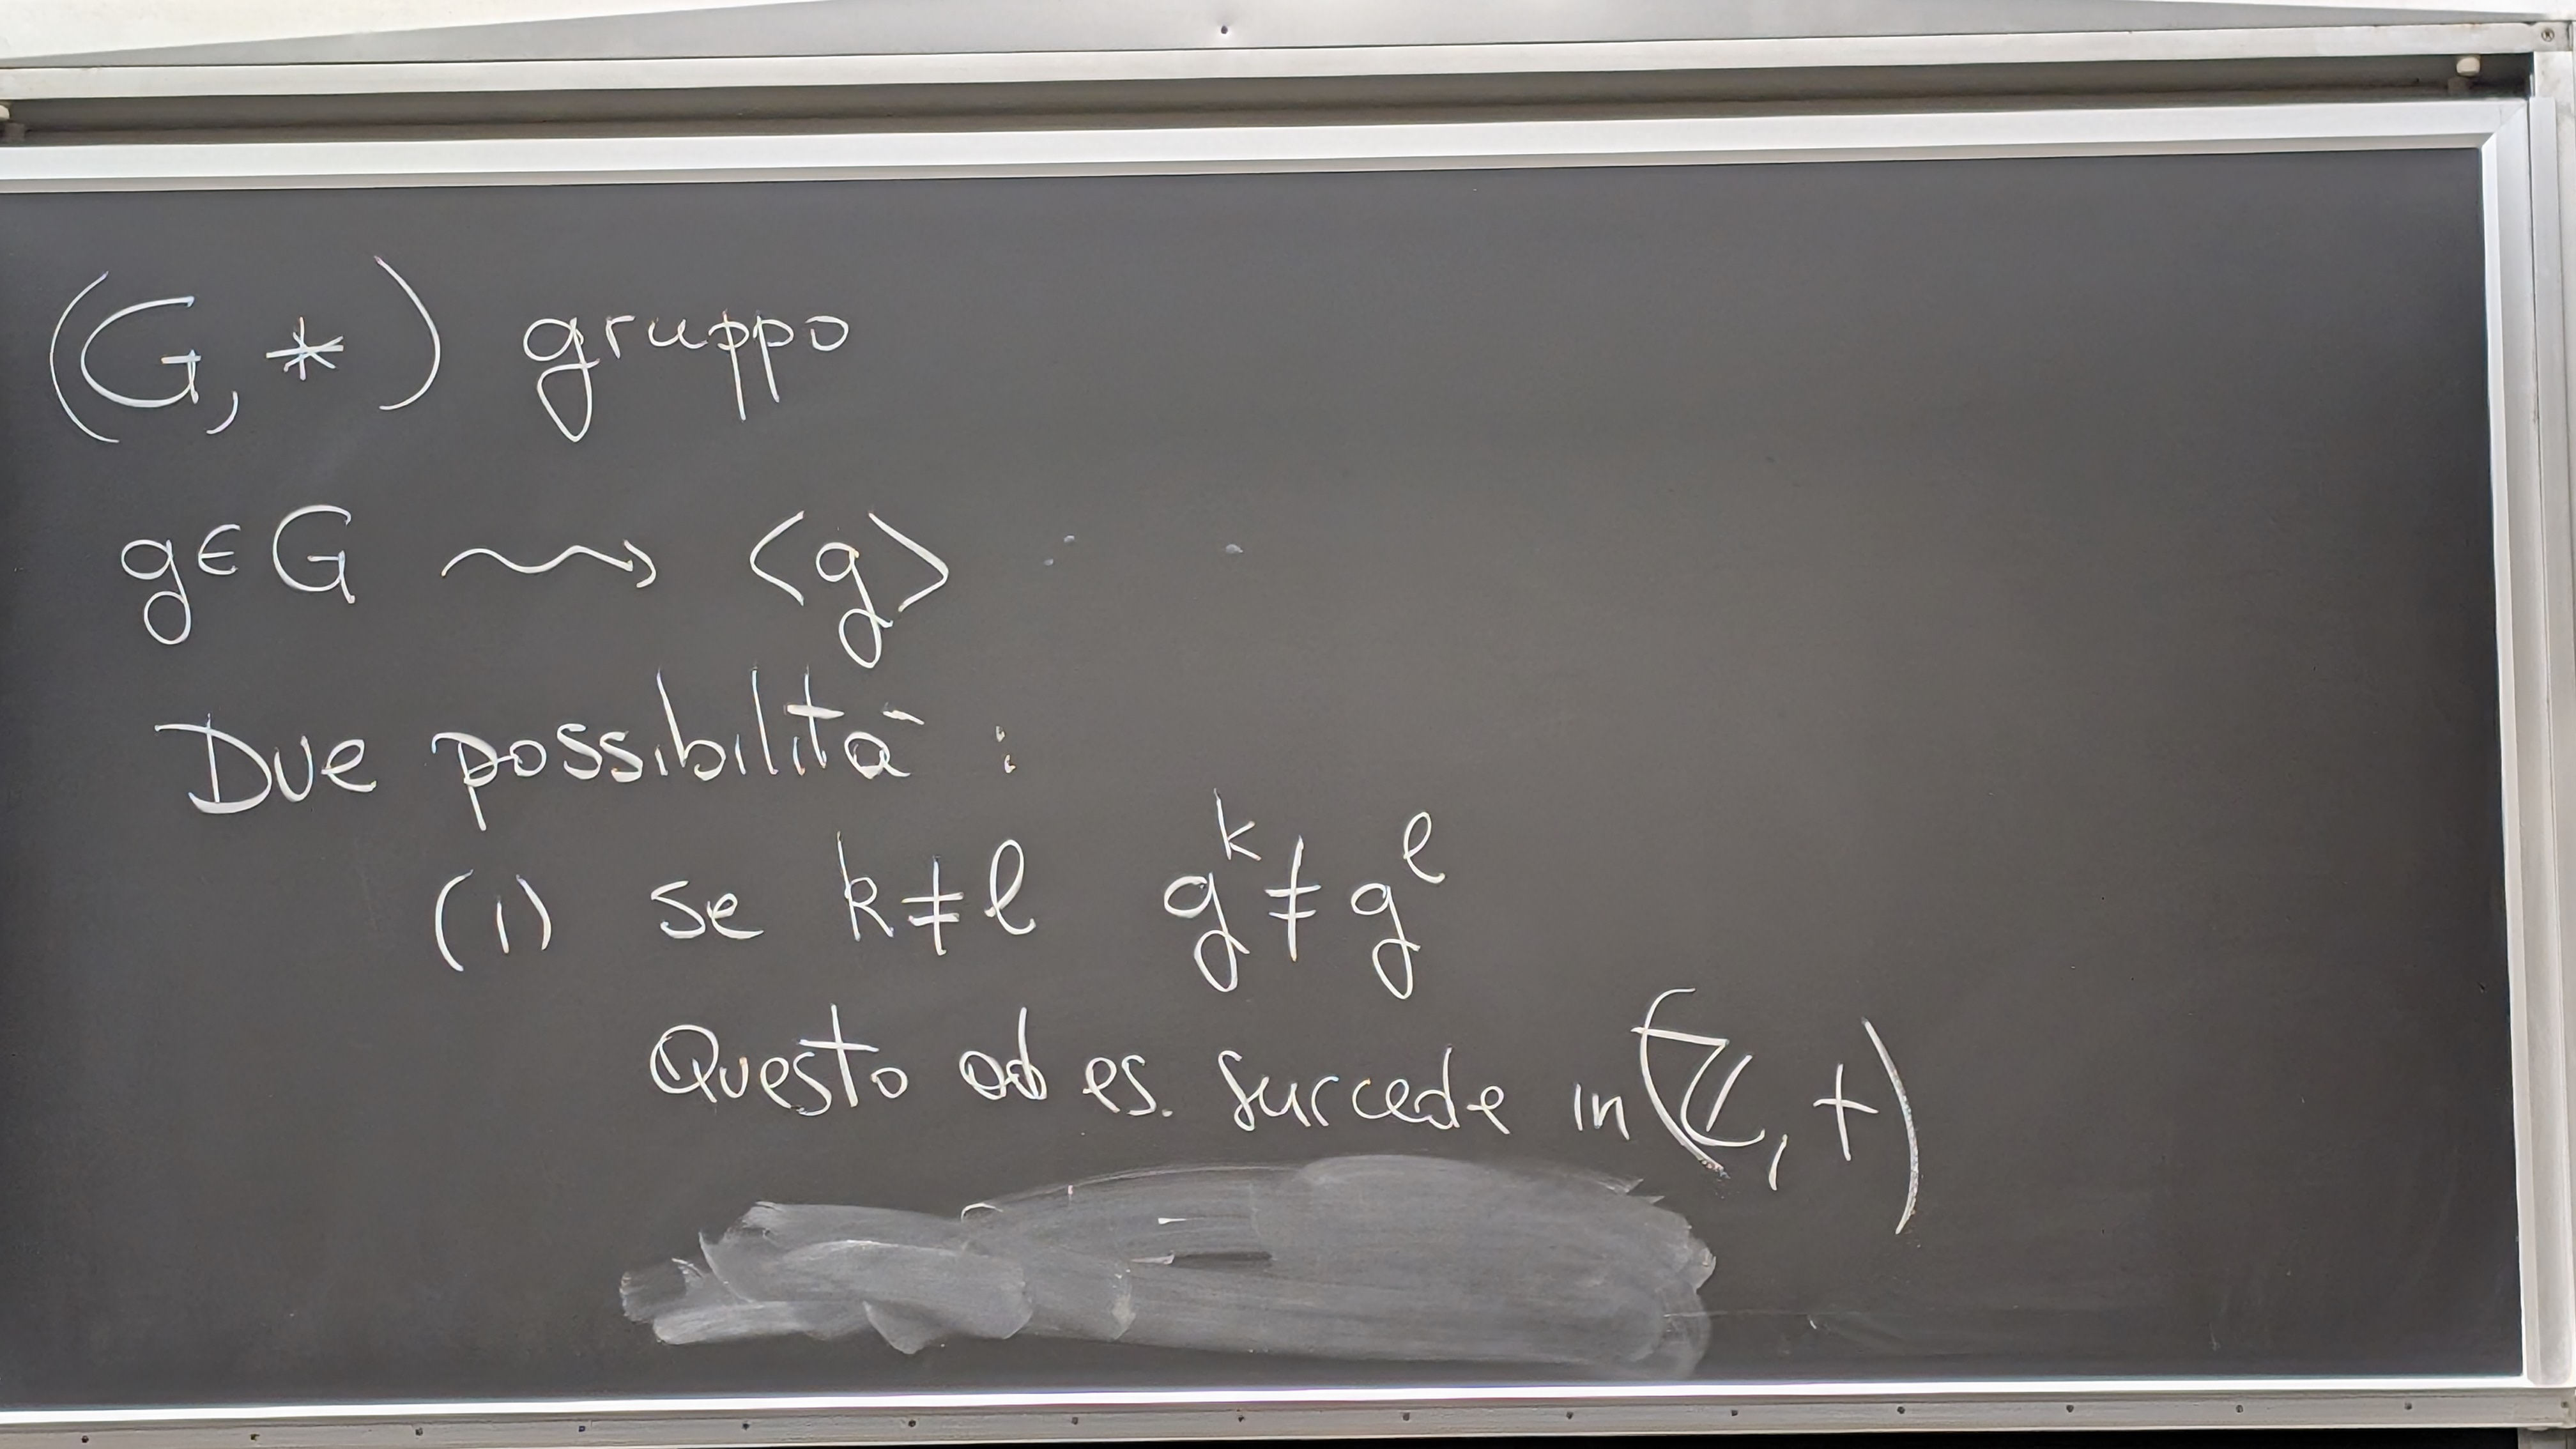 (G, *) gruppo
g∈G ⇝ <g>
Due possibilità :
(1) se k≠l g^k≠g^l
Questo ad es. succede in (ℤ, +)